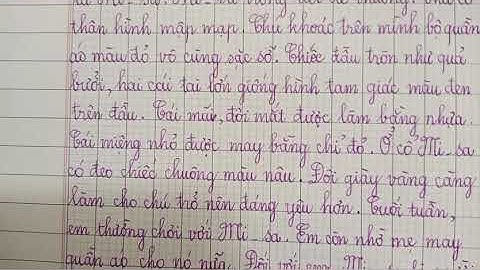 thân hình mập mạp. Chú khoác trên mình bộ quần
áo màu đỏ vô cùng sặc sỡ. Chiếc đầu tròn như quả
bưởi, hai cái tai lớn giống hình tam giác màu đen
trên đầu. Cái mũi, đôi mắt được làm bằng nhựa.
Cái miệng nhỏ được may bằng chỉ đỏ. Ở cổ Mi-sa
có đeo chiếc chuông màu nâu. Đôi giày vàng càng
làm cho chú trở nên đáng yêu hơn. Cuối tuần,
em thường chơi với Mi-sa. Em còn nhờ mẹ may
quần áo cho nó nữa. Đối với em, Mi